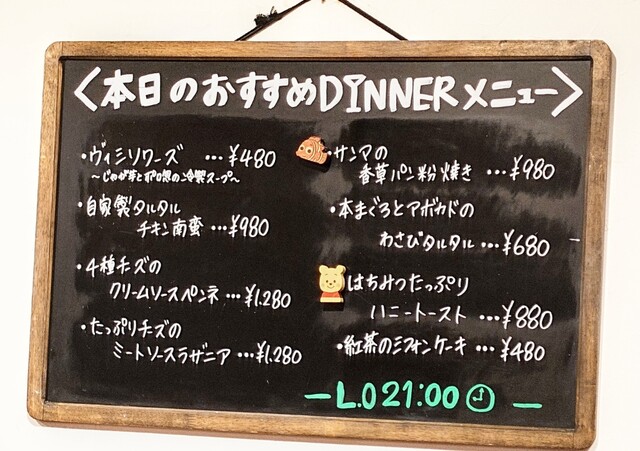 <本日のおすすめDINNERメニュー>
・ヴィシソワーズ …¥480
～じゃが芋とポロ葱の冷製スープ～
・自家製タルタル
チキン南蛮 …¥980
・4種チーズの
クリームソースペンネ …¥1,280
・たっぷりチーズの
ミートソースラザニア …¥1,280
・サンマの
香草パン粉焼き …¥980
・本まぐろとアボカドの
わさびタルタル …¥680
はちみつたっぷり
ハニートースト …¥880
・紅茶のシフォンケーキ …¥480
－L.O 21:00 －